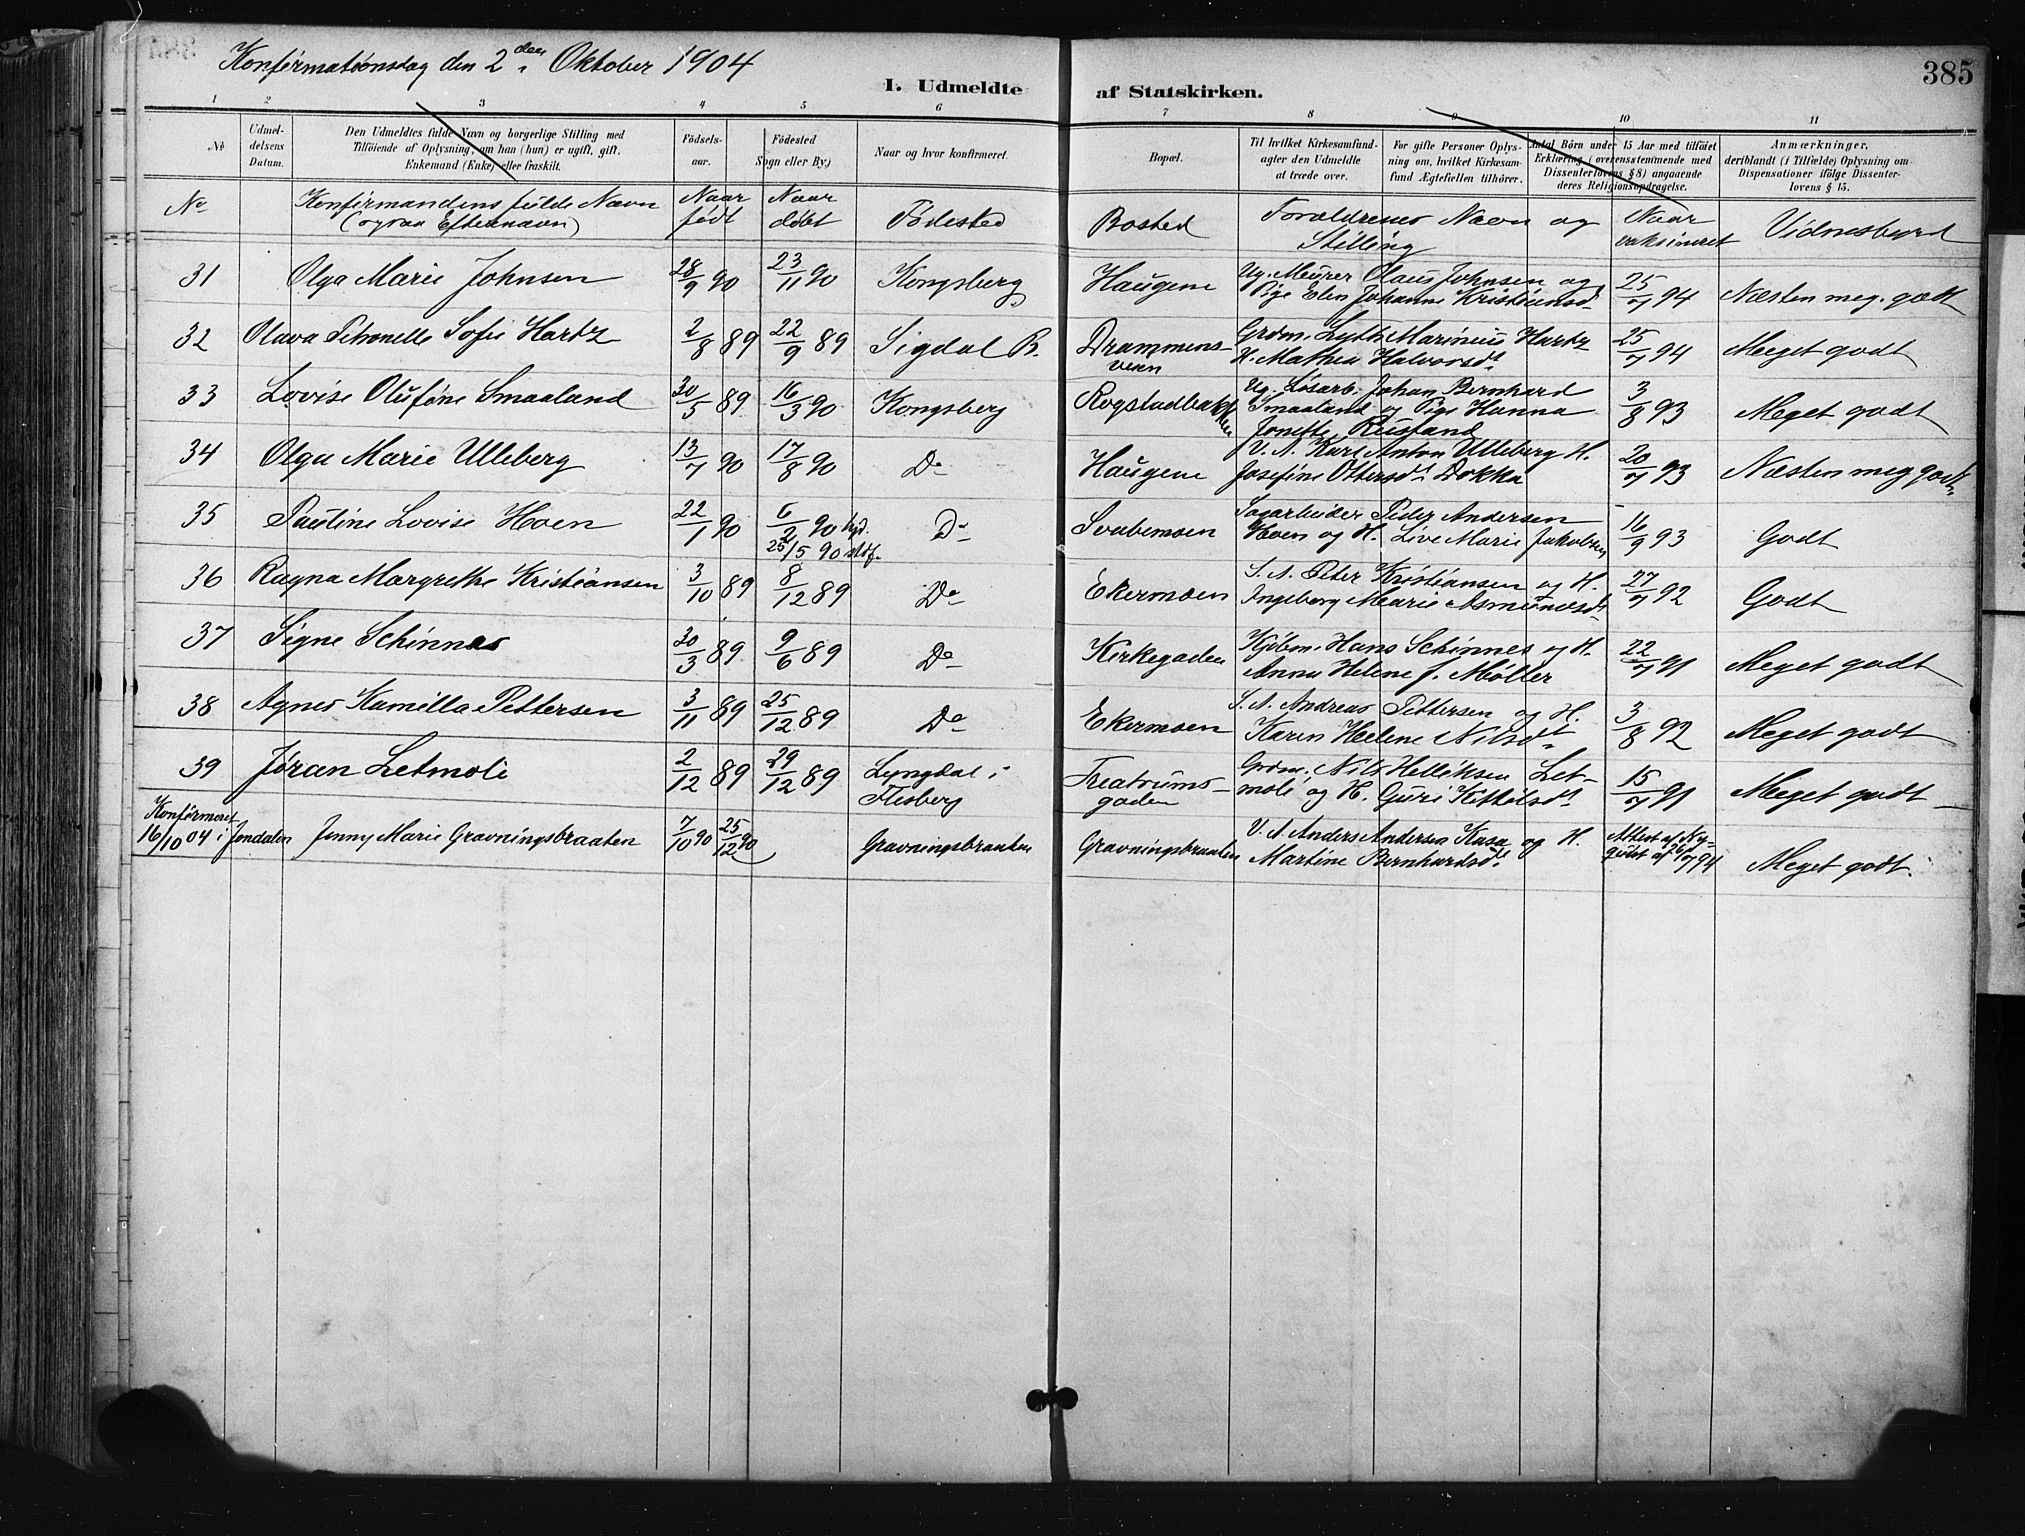 Konfirmationsdag den 2den Oktober 1904
385
I. Udmeldte af Statskirken.
1 2 3 4 5 6 7 8 9 10 11
No Udmeldelsens Datum. Den Udmeldtes fulde Navn og borgerlige Stilling med Tilføiende af Oplysning, om han (hun) er ugift, gift, Enkemand (Enke) eller fraskilt. Fødselsaar. Fødested (Sogn eller By.) Naar og hvor konfirmeret. Bopæl. Til hvilket Kirkesamfund agter den Udmeldte at træde over. For gifte Personer Oplysning om, hvilket Kirkesamfund Ægtefællen tilhører. Antal Børn under 15 Aar med tilføiet Erklæring (overensstemmende med Dissenterlovens § 8) angaaende deres Religionsopdragelse. Anmærkninger, deriblandt (i Tilfælde) Oplysning om Dispensationer ifølge Dissenterlovens § 15.
No Konfirmandens fulde Navn (ogsaa Efternavn) Naar født Naar døbt Fødested Bosted Forældrenes Navn og Stilling Naar vaksineret Vidnesbyrd
31 Olga Marie Johnsen 28/9 90 23/11 90 Kongsberg Haugene Ug. Murer Olaus Johnsen og Pige Elen Johanne Kristiansd. 25/7 94 Næsten meg. godt
32 Olava Petronelle Sofie Hartz 2/8 89 22/9 89 Sigdal B. Drammensveien Grdm. Marinius Hartz H. Mathea Halvorsd. 25/7 94 Meget godt
33 Lovise Olufine Smaaland 30/5 89 16/3 90 Kongsberg Rogstadbakken Ug. Løsarb. Johan Bernhard Smaaland og Pige Hanna Rustand 3/8 93 Meget godt
34 Olga Marie Ulleberg 13/7 90 17/8 90 Do Haugene V. A. Karl Anton Ulleberg H. Josefine Ottersd. Dokka 20/7 93 Næsten meg godt
35 Pauline Lovise Hoen 22/1 90 6/2 90 hjd. 25/5 90 stdf. Do Svabemoen Sagarbeider Peder Andersen Hoen og H. Live Marie Jakobsen 16/9 93 Godt
36 Ragna Margrethe Kristiansen 3/10 89 8/12 89 Do Ekermoen S. A. Peter Kristiansen og H. Ingeborg Marie Asmundsd. 27/7 92 Godt
37 Signe Schinnes 30/3 89 9/6 89 Do Kirkegaden Kjøbm. Hans Schinnes og H. Anna Helene f. Møller 22/7 91 Meget godt
38 Agnes Kamilla Pettersen 3/11 89 25/12 89 Do Ekermoen S. A. Andreas Pettersen og H. Karen Helene Nilsdt. 3/8 92 Meget godt
39 Jøran Letmoli 2/12 89 29/12 89 Lyngdal i Flesberg Teatrumsgaden Grdm. Nils Helliksen Letmoli og H. Guri Kittilsd. 15/7 91 Meget godt
Konfirmeret 16/10 04 i Jondalen Jenny Marie Gravningsbraaten 7/10 90 25/12 90 Gravningsbraaten Gravningsbraaten V. A. Anders Andersen Kasa og H. Martine Bernhardsd. Attest af Nyquist af 94 Meget godt.